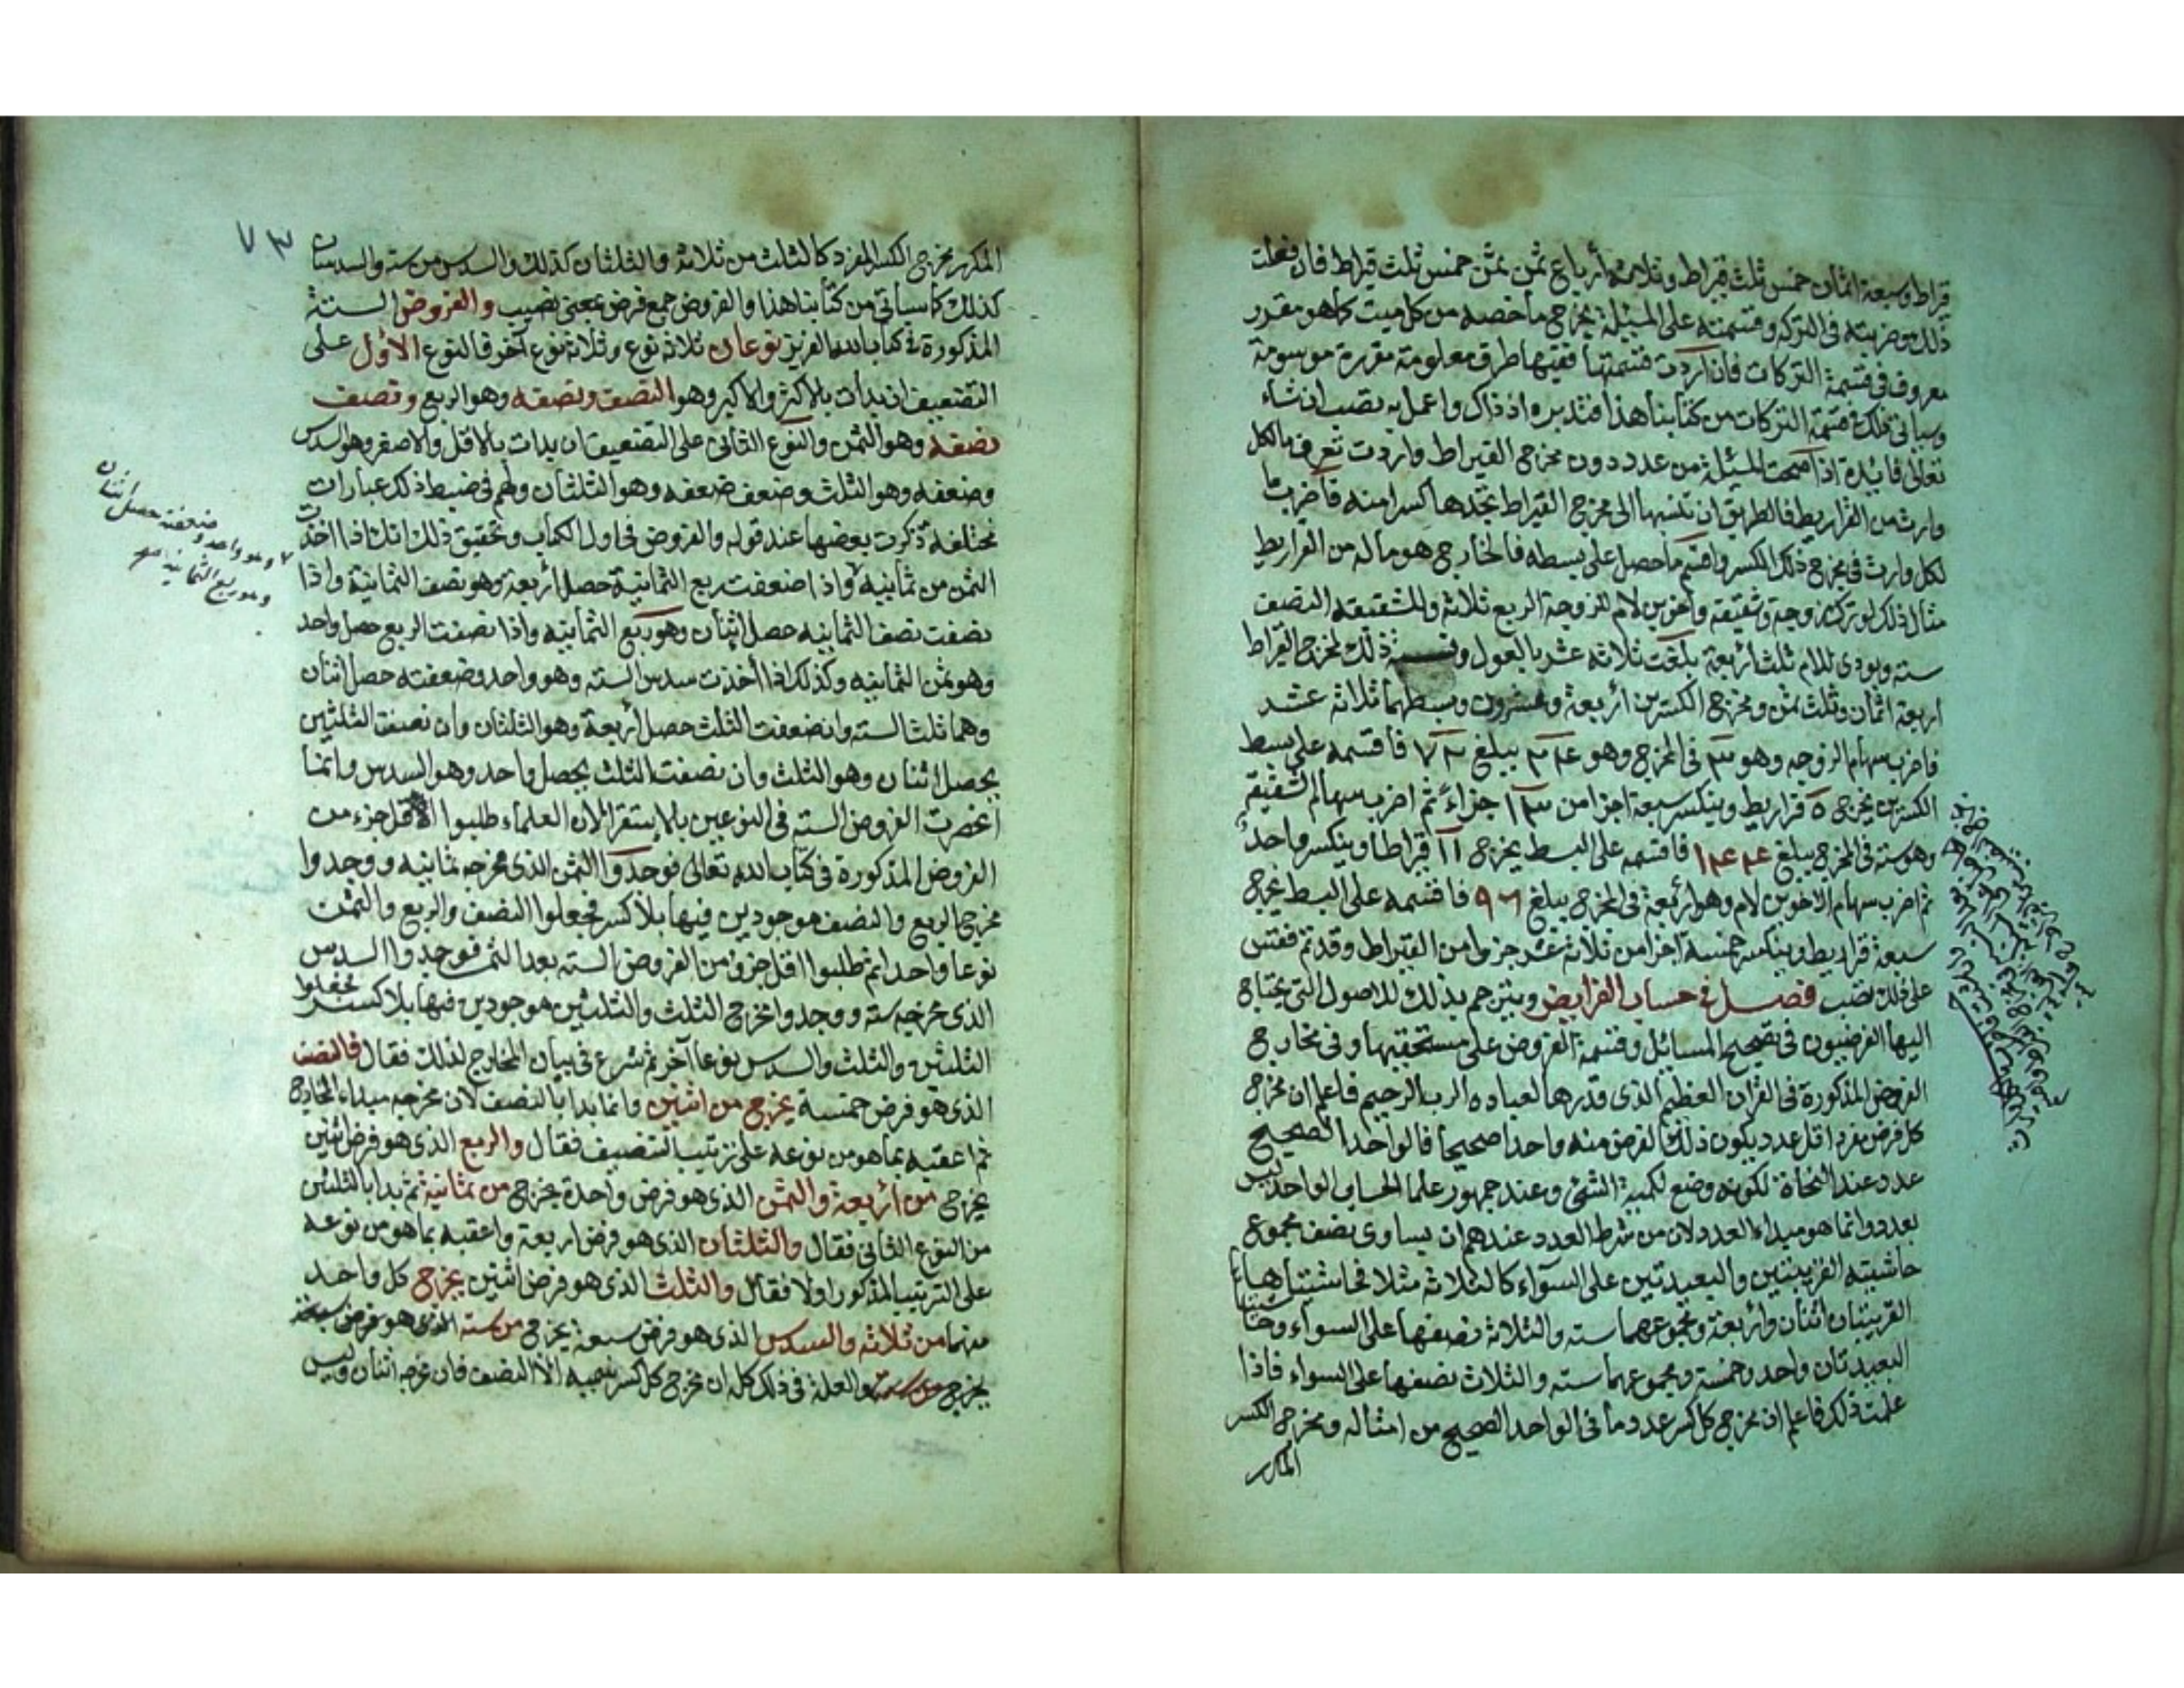 قراط وسبعة اثمان خمس ثلث قيراط وثلاثة أرباع ثمن ثمن خمس ثلث قيراط فان فعلت
ذلك وضربته في التركه وقسمته على المسيلة يخرج ما خصه من كل ميت كما هو مقدور
معروف في قسمة التركات فان اردت قسمتها ففيها طرق معلومة مقررة موسومة
وسياتي ذلك في قسمة التركات من كتابنا هذا فتدبره اذ ذاك واعمل به تصب ان شاء
تعالى فايدة اذا صحت المسئلة من عدد دون مخرج القيراط واردت تعرف مالكل
وارث من القراريط فالطريق ان تنسبها الى مخرج القيراط تجدها كسرا منه فاضرب ما
لكل وارث في مخرج ذلك الكسر واقسم ما حصل على بسطه فالخارج هو ماله من القراريط
مثال ذلك لو ترك زوجة وشقيقة واخوين لام للزوجة الربع ثلاثة والشقيقه النصف
سته وبودي للام ثلث أربعة بلغت ثلاثه عشر بالعول ونسبة ذلك لمخرج القيراط
اربعة اثمان وثلث ثمن ومخرج الكسرين أربعة وعشرون وبسطهما ثلاثه عشر
فاضرب سهام الزوجه وهو ٣ في المخرج وهو ٢٤ يبلغ ٧٢ فاقسمه على بسط
الكسرين يخرج ٥ قراريط وينكسر سبعة اجزا من ١٣ جزاء ثم اضرب سهام الشقيقة
وهو سته في المخرج يبلغ ١٤٤ فاقسمه على البسط يخرج ١١ قيراطا وينكسر واحد
ثم اضرب سهام الاخوين لام وهو اربعة في المخرج يبلغ ٩٦ فاقسمه على البسط يخرج
سبعة قراريط وينكسر خمسة اجزا من ثلاثة عشر جزوا من القيراط وقد تم فقس
على ذلك تصب فصل في حساب الفرايض ويترجم بذلك للاصول التي يحتاج
اليها الفرضيون في تصحيح المسائل وقسمة الفروض على مستحقيها وفي مخارج
الفروض المذكورة في القران العظيم الذي قدرها لعباده الرب الرحيم فاعلم ان مخرج
كل فرض مفرد اقل عدد يكون ذلك الفرض منه واحدا صحيحا فالواحد الصحيح
عدد عند النحاة لكونه وضع لكمية الشئ وعند جمهور علما الحساب الواحد ليس
بعدد وانما هو مبداء العدد لان من شرط العدد عندهم ان يساوى نصف مجموع
حاشيته القريبتين والبعيدتين على السوآء كالثلاثة مثلا فحاشيتاها
القريبتان اثنان وأربعة ومجموعهما سته والثلاثة نصفها على السواء وحاشيتاها
البعيدتان واحد وخمسة ومجموعهما سته والثلاث نصفها على السواء فاذا
علمت ذلك فاعلم ان مخرج كل كسر عدد وما في الواحد الصحيح من امثاله ومخرج الكسر
المكرر
٧٣
المكرر مخرج الكسر المفرد كالثلث من ثلاثة والثلثان كذلك والسدس من سته والسدسان
كذلك كما سياتي من كتابنا هذا والفروض جمع فرض بمعنى نصيب والفروض الستة
المذكورة في كتاب الله العزيز نوعان ثلاثة نوع وثلاثة نوع آخر فالنوع الاول على
التنصيف ان بدات بالاكثر والاكبر وهو النصف ونصفه وهو الربع ونصف
نصفه وهو الثمن والنوع الثاني على التضعيف ان بدات بالاقل والاصغر وهو السدس
وضعفه وهو الثلث وضعف ضعفه وهو الثلثان ولهم في ضبط ذلك عبارات
مختلفة ذكرت بعضها عند قوله والفروض في اول الكتاب وتحقيق ذلك انك اذا اخذت
الثمن من ثمانيه واذا ضعفت ربع الثمانية حصل أربعة وهو نصف الثمانية واذا
نصفت نصف الثمانيه حصل اثنان وهو ربع الثمانيه واذا نصفت الربع حصل واحد
وهو ثمن الثمانيه وكذلك اذا أخذت سدس السته وهو واحد وضعفته حصل اثنان
وهما ثلث السته وان ضعفت الثلث حصل أربعة وهو الثلثان وان نصفت الثلثين
يحصل اثنان وهو الثلث وان نصفت الثلث يحصل واحد وهو السدس وانما
انحصرت الفروض السته في النوعين بالاستقرا لان العلماء طلبوا الاقل جزء من
الفروض المذكورة في كتاب الله تعالى فوجدوا الثمن الذي مخرجه ثمانيه ووجدوا
مخرج الربع والنصف موجودين فيها بلا كسر فجعلوا النصف والربع والثمن
نوعا واحدا ثم طلبوا اقل جزؤ من الفروض السته بعد الثمن فوجدوا السدس
الذي مخرجه سته ووجدوا مخرج الثلث والثلثين موجودين فيها بلا كسر فجعلوا
الثلثين والثلث والسدس نوعا آخر ثم شرع في بيان المخارج لذلك فقال فالنصف
الذي هو فرض خمسة يخرج من اثنين وانما بدا بالنصف لان مخرجه مبداء المخارج
ثم اعقبه بما هو من نوعه على ترتيب التنصيف فقال والربع الذي هو فرض اثنين
يخرج من أربعة والثمن الذي هو فرض واحدة يخرج من ثمانية ثم بدا بالثلثين
من النوع الثاني فقال والثلثان الذي هو فرض اربعة واعقبه بما هو من نوعه
على الترتيب المذكور اولا فقال والثلث الذي هو فرض اثنين يخرج كل واحد
منهما من ثلاثه والسدس الذي هو فرض سبعة يخرج من سته الذي هو فرض سبعة
يخرج من ستة والعلة في ذلك كله ان مخرج كل كسر سميه الا النصف فان مخرجه اثنان وليس
وهو واحد وضعفته حصل اثنان
وهو ربع الثمانيه صح